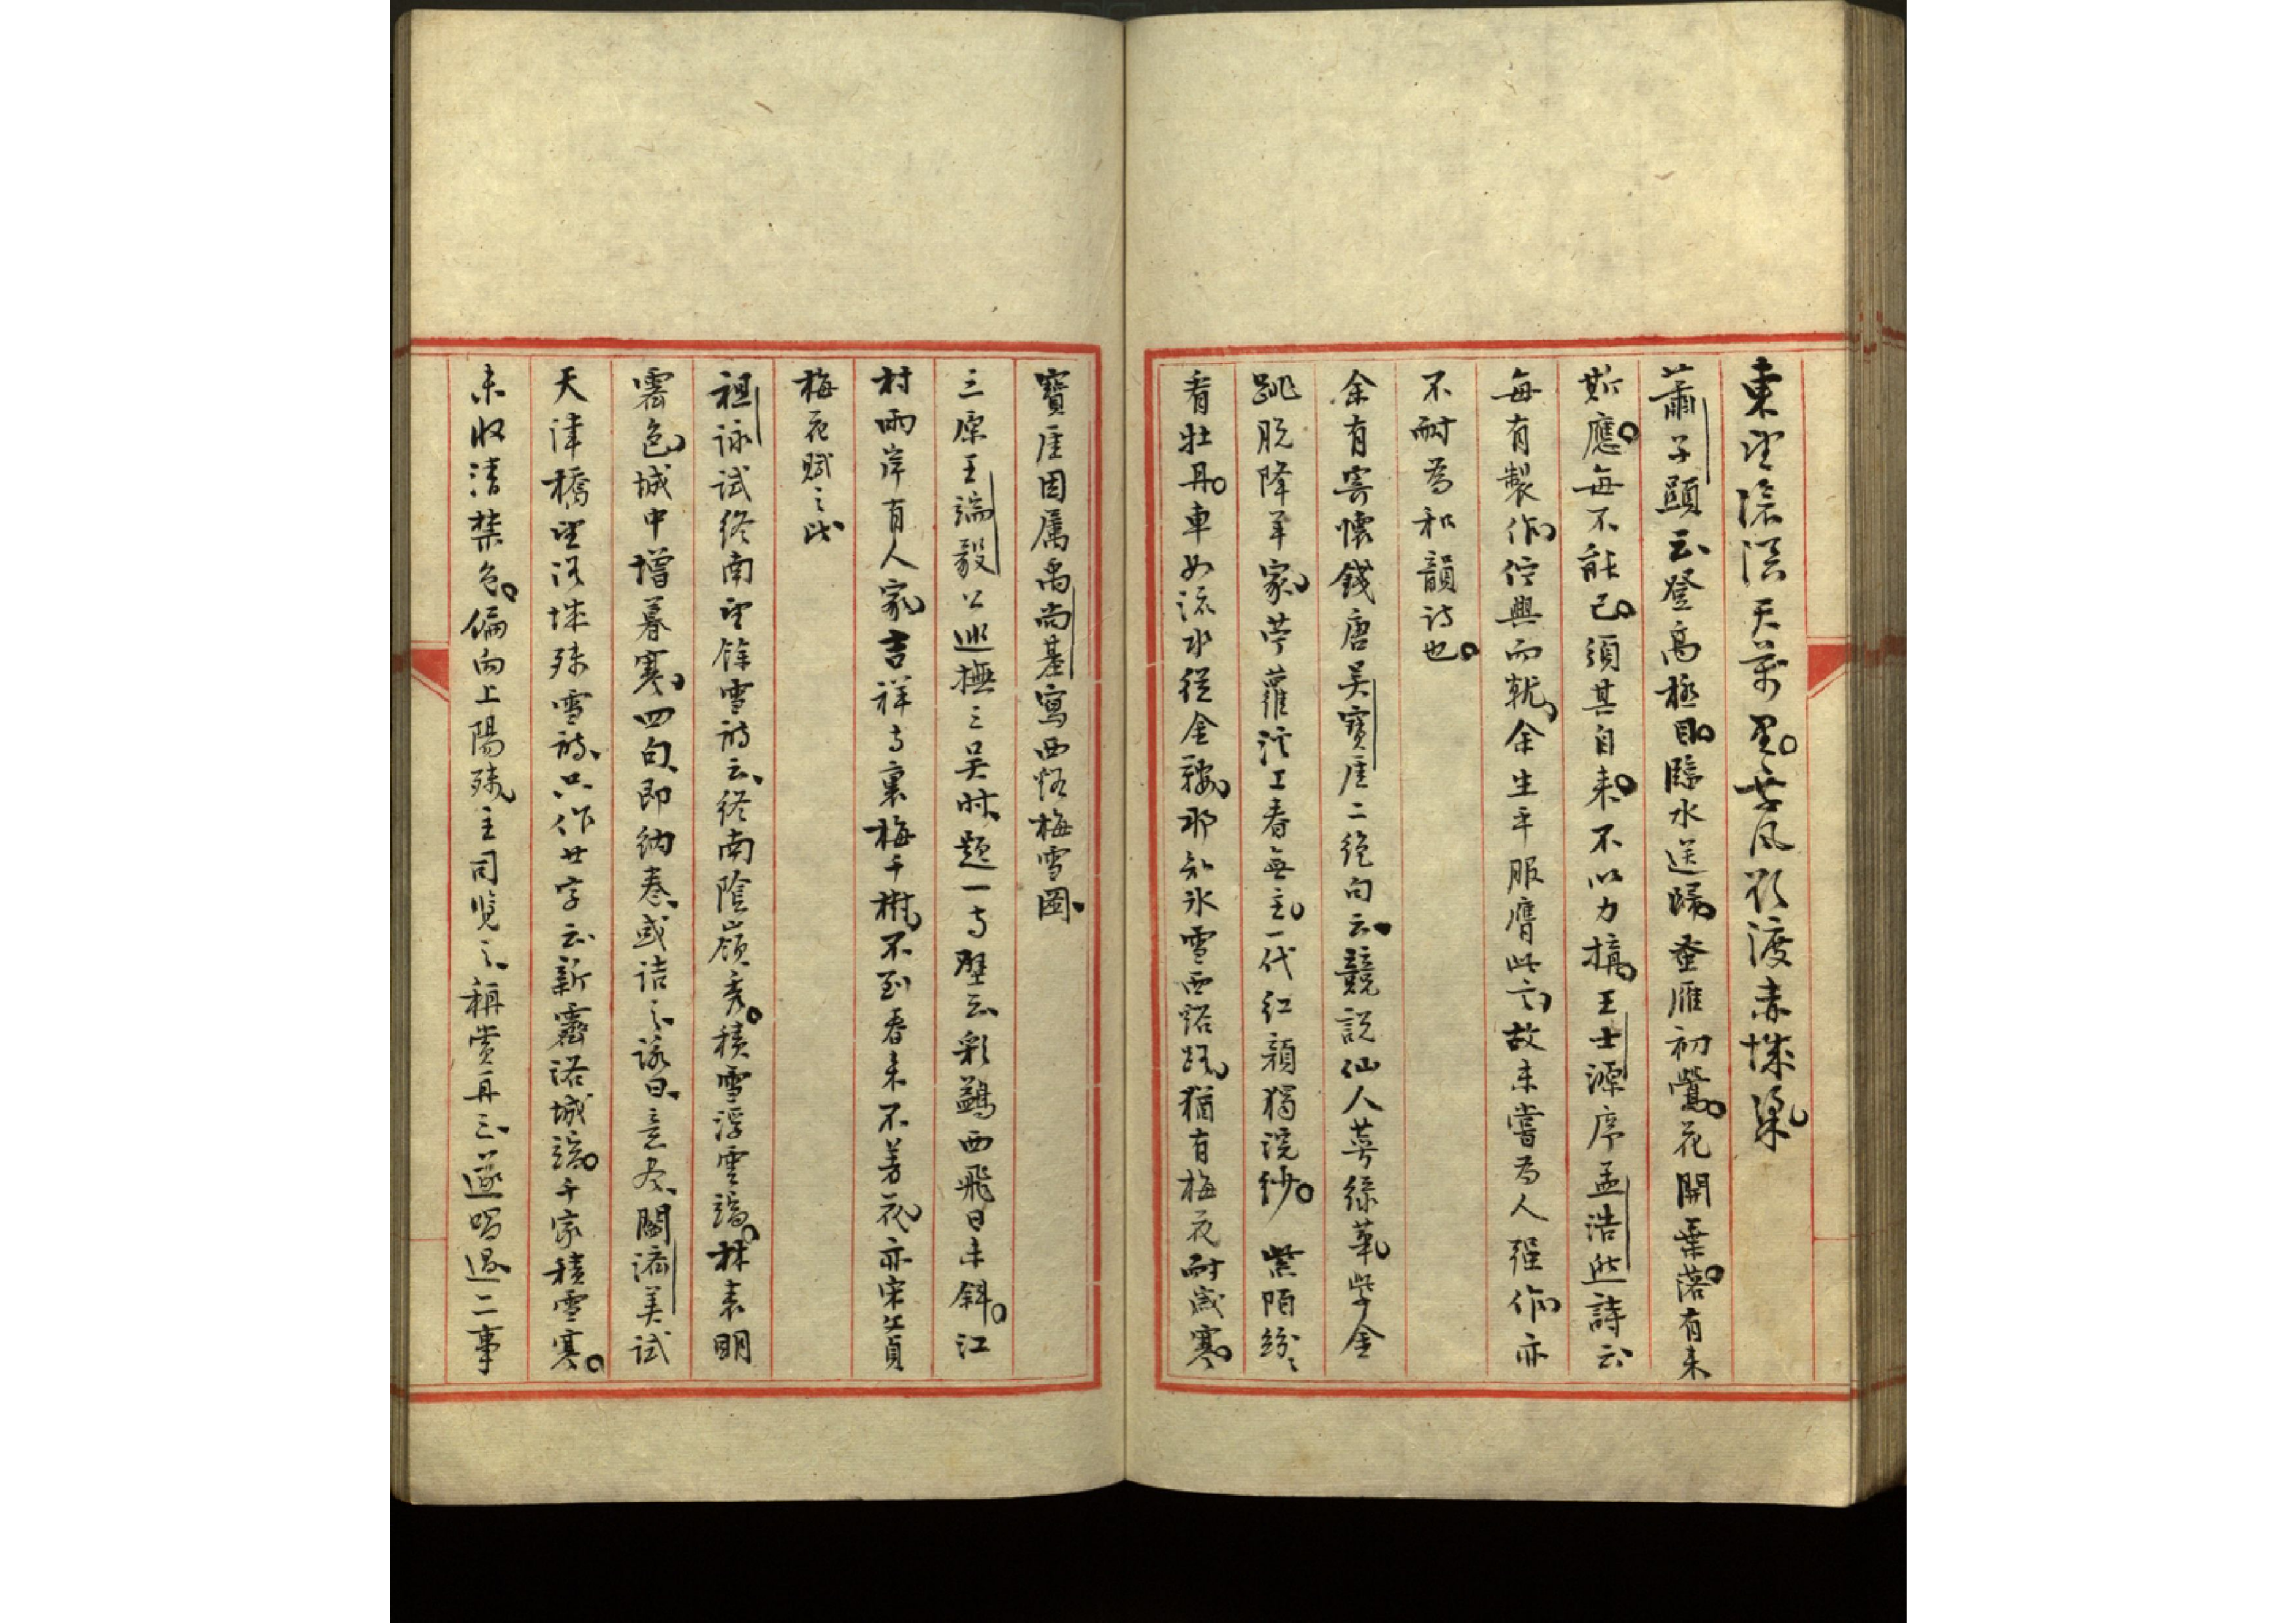 東望滄溟天萬里無風欲渡赤城梁
蕭子顯云登高極目臨水送歸蚤雁初鶯花開葉落有來
斯應每不能已須其自來不以力搆王士源序孟浩然詩云
每有製作佇興而就余生平服膺此言故未嘗為人強作亦
不耐為和韻詩也
余有寄懷錢唐吳寶厓二絕句云競說仙人萼綠華紫金
跳脫降羊家苧蘿江上春無主一代紅顏獨浣紗 紫陌紛〻
看牡丹車如流水從金鞍那知氷雪西谿路猶有梅花耐歲寒
寶厓因属禹尚基寫西谿梅雪圖
三原王端毅公巡撫三吳時題一寺壁云彩鷁西飛日未斜江
村兩岸有人家吉祥寺裏梅千樹不到春來不著花亦宋廣
梅花賦之比
祖詠試終南望餘雪詩云終南陰嶺秀積雪浮雲端林表明
霽色城中增暮寒四句即納卷或詰之詠曰意盡閻濟美試
天津橋望洛城殘雪詩只作廿字云新霽洛城端千家積雪寒
未收清禁色偏向上陽殘主司覽之稱賞再三遂唱過二事